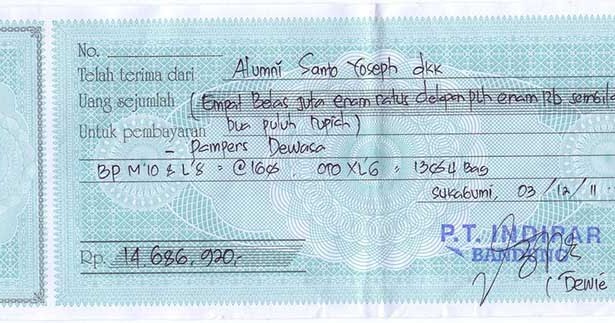 No.
Telah terima dari Alumni Santo Yoseph dkk
Uang sejumlah (Empat Belas juta enam ratus delapan plh enam Rb sembila
Untuk pembayaran Dua puluh rupiah)
- Pampers Dewasa
BP M'10 & L'8 = @ 168 OTO XL6 = 1368 4 Bag
Sukabumi, 03/12/11
P.T. INDIRAR
BANDUNG
Rp. 14.686.920,-
(Dewie